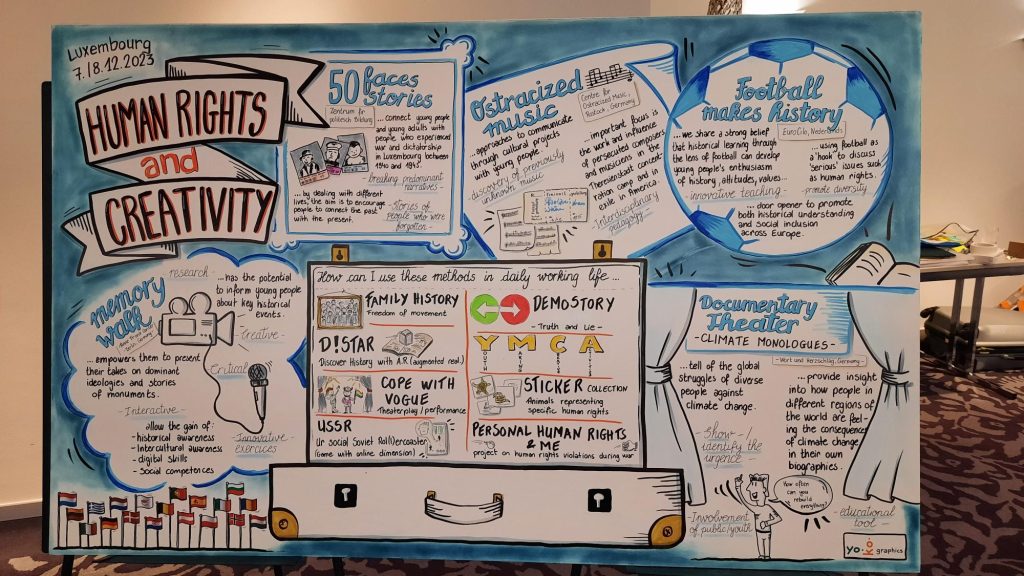 Luxembourg
7./8.12.2023
HUMAN RIGHTS
and
CREATIVITY
50 faces
stories
Zentrum für
politesch Bildung
...connect young people
and young adults with
people who experienced
war and dictatorship
in Luxembourg between
1940 and 1945
breaking predominant
narratives -
... by dealing with different
lives, the aim is to encourage
people to connect the past
with the present.
Stories of
people who were
forgotten -
Ostracized
music
Centre for
Ostracized Music,
Rostock, Germany
...approaches to communicate
through cultural projects
with young people.
discovery of previously
unknown music
important focus is
the work and influence
of persecuted composers
and musicians in the
Theresienstadt concent
ration camp and in
exile in America.
-Interdisciplinary
pedagogy-
Football
makes history
EuroClio, Nederlands
...we share a strong belief
that historical learning through
the lens of football can develop
young people's enthusiasm
of history, attitudes, values...
- innovative teaching -
...using football as
a 'hook' to discuss
'Serious' issues such
as human rights.
-promote diversity-
... door opener to promote
both historical understanding
and Social inclusion
across Europe.
memory
walk
research -
...has the potential
to inform young people
about key historical
events.
-Creative-
Critical
... empowers them to present
their takes on dominant
ideologies and stories
of monuments.
- Interactive -
allow the gain of:
- historical awareness
- intercultural awareness
- digital skills
- Social competences
-Innovative
exercices
How can I use these methods in daily working life ...
FAMILY HISTORY
Freedom of movement
D!STAR
Discover History with A.R (augmented real.)
COPE WITH
VOGUE
Theaterplay / performance
USSR
Ur social Soviet Roll(er)coaster
(Game with online dimension)
DEMOSTORY
- Truth and Lie -
YMCA
STICKER COLLECTION
Animals representing
specific human rights
PERSONAL HUMAN RIGHTS
& ME
project on human rights violations during war
Documentary
Theater
- CLIMATE MONOLOGUES -
- Wort und Herzschlag, Germany -
...tell of the global
struggles of diverse
people against
climate change.
Show-/
identify the
urgence
... provide insight
into how people in
different regions of
the world are feel-
ing the consequences
of climate change
in their own
biographies.
How often
can you
rebuild
everything?
-Involvement
of public/youth
- educational
tool -
yo.ko.graphics